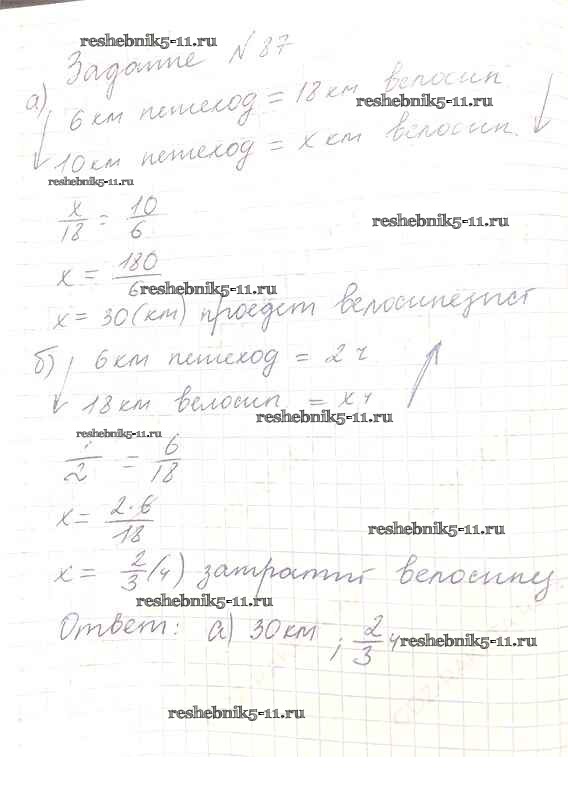 reshebnik5-11.ru
Задание №87
а) 6 км пешеход = 18 км велосип
reshebnik5-11.ru
10 км пешеход = x км велосип.
reshebnik5-11.ru
x/18 = 10/6
reshebnik5-11.ru
x = 180/6
reshebnik5-11.ru
x = 30 (км) проедет велосипедист
б) 6 км пешеход = 2 ч
18 км велосип = x ч
reshebnik5-11.ru
reshebnik5-11.ru
/2 = 6/18
x = 2·6/18
reshebnik5-11.ru
x = 2/3 (ч) затратит велосипед
reshebnik5-11.ru
Ответ: а) 30 км ; 2/3 ч
reshebnik5-11.ru
reshebnik5-11.ru